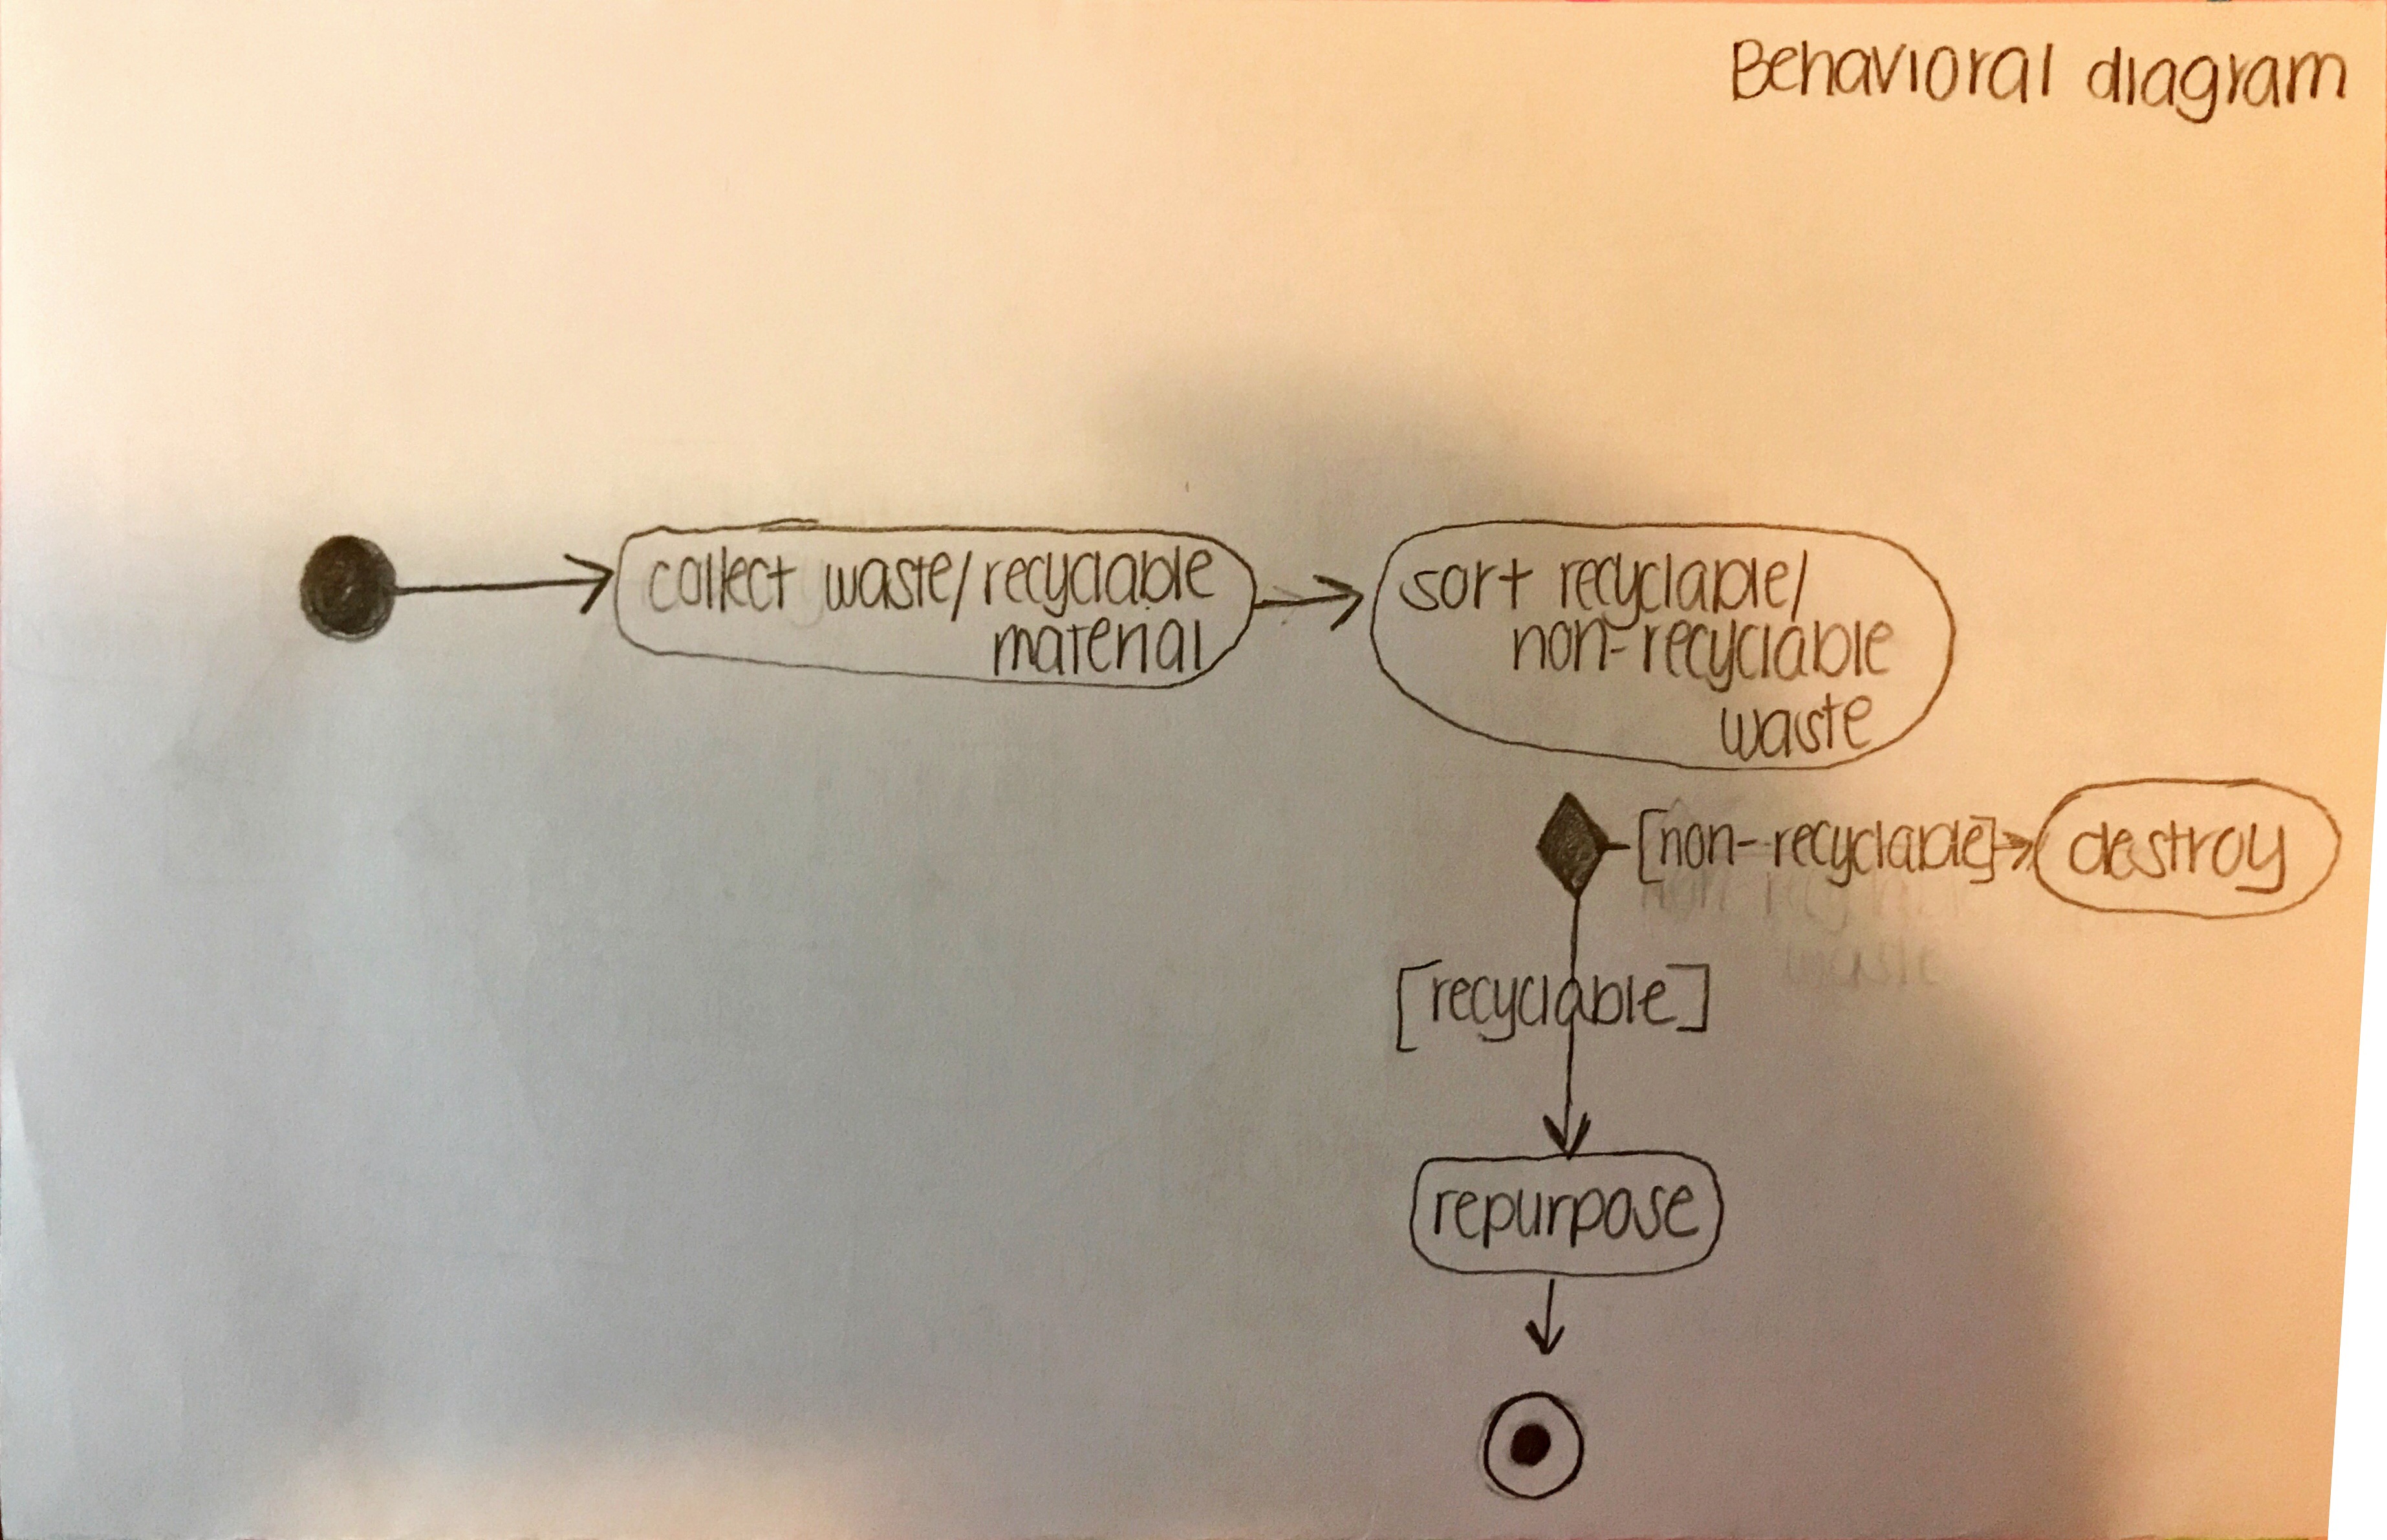 Behavioral diagram
collect waste/recyclable
material
sort recyclable/
non-recyclable
waste
[non-recyclable]
destroy
[recyclable]
repurpose